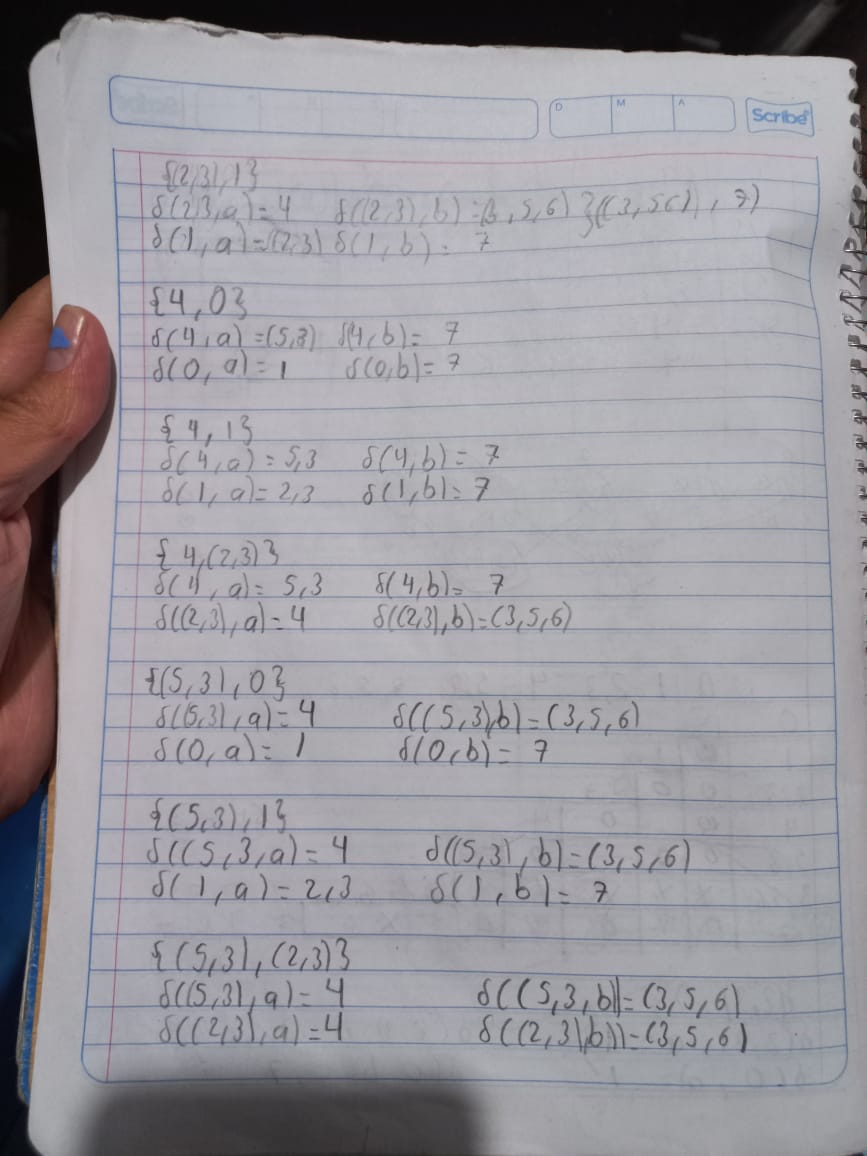 D M A Scribe
{(2,3),1}
δ(2,3,a)=4 δ((2,3),b)=(3,5,6) }((3,5,6), 7)
δ(1,a)=(2,3) δ(1,b)= 7
{4,0}
δ(4,a)=(5,3) δ(4,b)= 7
δ(0,a)=1 δ(0,b)=7
{4,1}
δ(4,a)=5,3 δ(4,b)=7
δ(1,a)=2,3 δ(1,b)=7
{4,(2,3)}
δ(4,a)=5,3 δ(4,b)= 7
δ((2,3),a)=4 δ((2,3),b)=(3,5,6)
{(5,3),0}
δ((5,3),a)=4 δ((5,3),b)=(3,5,6)
δ(0,a)=1 δ(0,b)=7
{(5,3),1}
δ((5,3,a)=4 δ((5,3),b)=(3,5,6)
δ(1,a)=2,3 δ(1,b)=7
{(5,3),(2,3)}
δ((5,3),a)=4 δ((5,3,b)=(3,5,6)
δ((2,3),a)=4 δ((2,3),b))=(3,5,6)